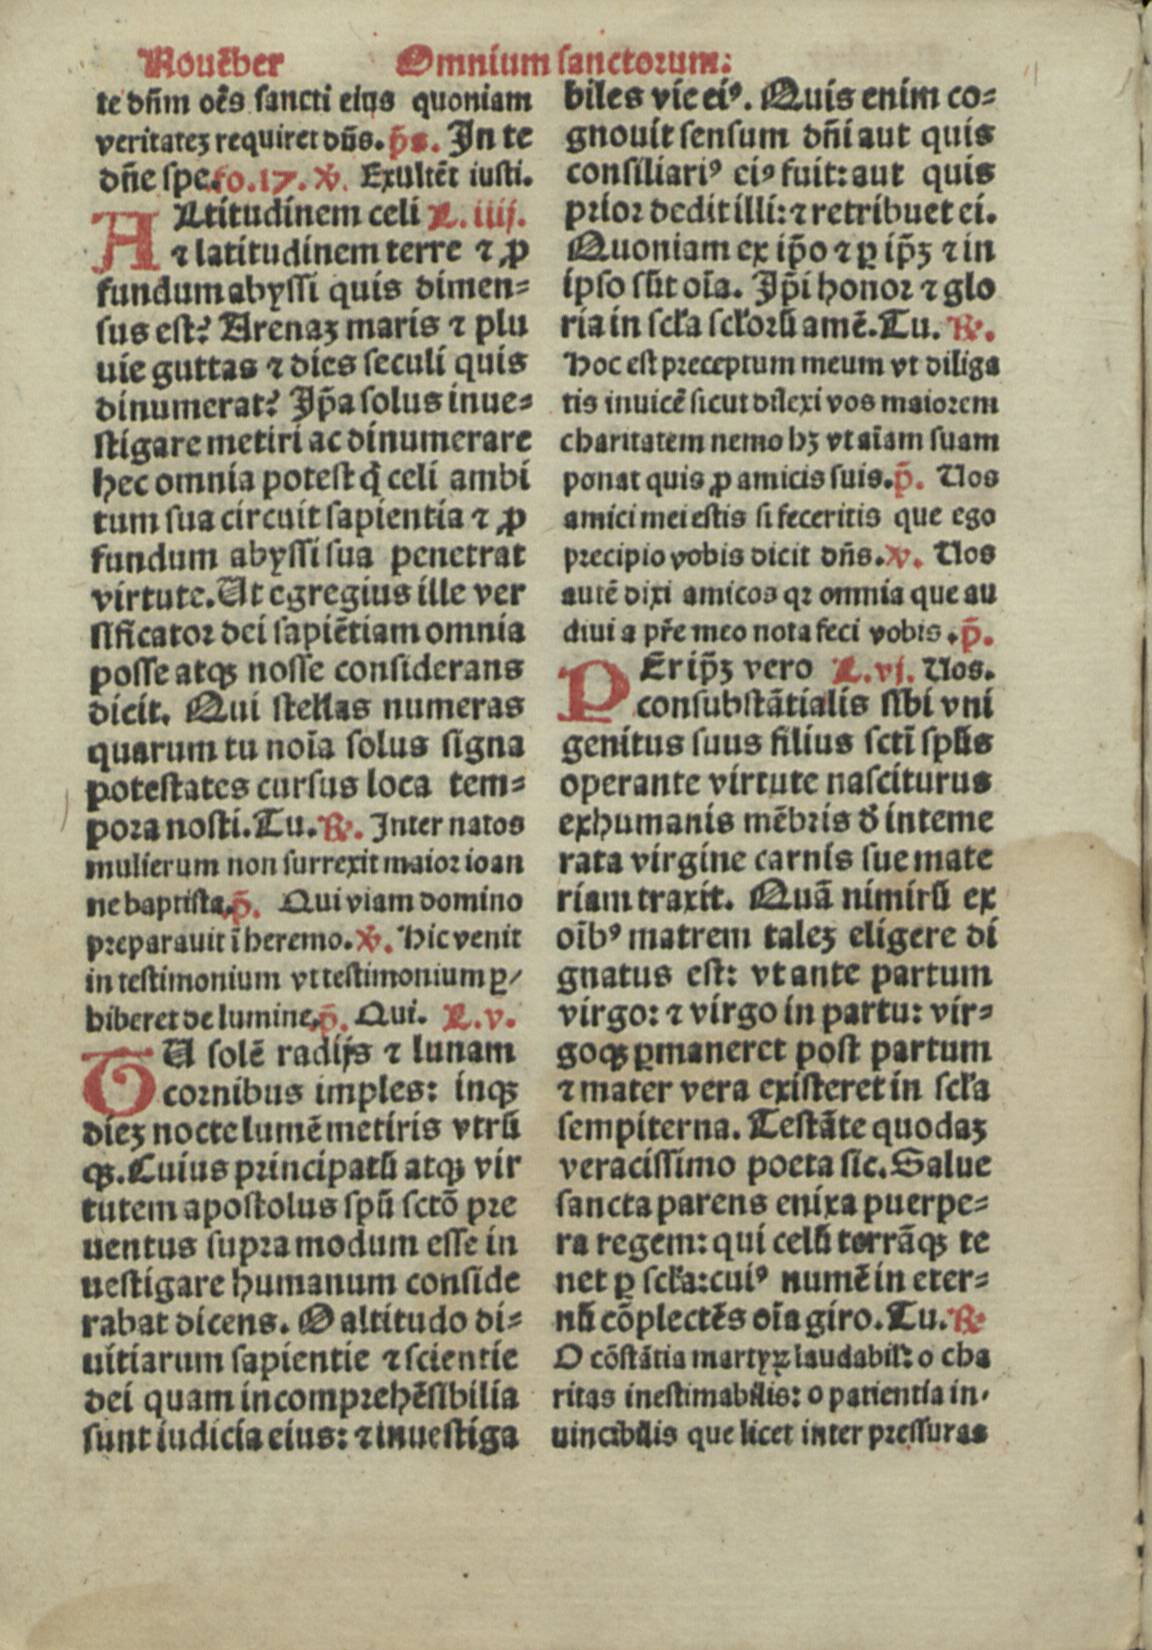 Nouẽber Omnium sanctorum:
te dñm oẽs sancti eius quoniam
veritateʒ requiret dñs. p̃s. In te
dñe spe. fo. 17. ℣. Exultẽt iusti.
ALtitudinem celi L. iiij.
⁊ latitudinem terre ⁊ ꝓ
fundum abyssi quis dimen-
sus est? Arenaʒ maris ⁊ plu
uie guttas ⁊ dies seculi quis
dinumerat? Ip̃a solus inue-
stigare metiri ac dinumerare
hec omnia potest q̃ celi ambi
tum sua circuit sapientia ⁊ ꝓ
fundum abyssi sua penetrat
virtute. Ut egregius ille ver
sificator dei sapiẽtiam omnia
posse atqꝫ nosse considerans
dicit. Qui stellas numeras
quarum tu noĩa solus signa
potestates cursus loca tem-
pora nosti. Tu. ℟. Inter natos
mulierum non surrexit maior ioan
ne baptista. p̃. Qui viam domino
preparauit ĩ heremo. ℣. Hic venit
in testimonium vt testimonium ꝑ/
hiberet de lumine. p̃. Qui. L. v.
TU solẽ radijs ⁊ lunam
cornibus imples: inqꝫ
dieʒ nocte lumẽ metiris vtrũ
qꝫ. Cuius principatũ atqꝫ vir
tutem apostolus spũ sctõ pre
uentus supra modum esse in
uestigare humanum conside
rabat dicens. O altitudo di-
uitiarum sapientie ⁊ scientie
dei quam incomprehẽsibilia
sunt iudicia eius: ⁊ inuestiga
biles vie eiꝰ. Quis enim co-
gnouit sensum dñi aut quis
consiliariꝰ eiꝰ fuit: aut quis
prior dedit illi: ⁊ retribuet ei.
Quoniam ex ip̃o ⁊ ꝑ ip̃ʒ ⁊ in
ipso sũt oĩa. Ip̃i honor ⁊ glo
ria in scl̃a scl̃orũ amẽ. Tu. ℟.
Hoc est preceptum meum vt diliga
tis inuicẽ sicut dilexi vos maiorem
charitatem nemo hʒ vt aĩam suam
ponat quis ꝓ amicis suis. p̃. Uos
amici mei estis si feceritis que ego
precipio vobis dicit dñs. ℣. Uos
autẽ dixi amicos qꝛ omnia que au
diui a pr̃e meo nota feci vobis. p̃.
PEr ip̃ʒ vero L. vj. Uos.
consubstãtialis sibi vni
genitus suus filius sctĩ spũs
operante virtute nasciturus
ex humanis mẽbris d̃ inteme
rata virgine carnis sue mate
riam traxit. Quã nimirũ ex
oĩbꝰ matrem taleʒ eligere di
gnatus est: vt ante partum
virgo: ⁊ virgo in partu: vir-
goqꝫ ꝑmaneret post partum
⁊ mater vera existeret in scl̃a
sempiterna. Testãte quodaʒ
veracissimo poeta sic. Salue
sancta parens enixa puerpe-
ra regem: qui celũ terrãqꝫ te
net ꝑ scl̃a: cuiꝰ numẽ in eter-
nũ cõplectẽs oĩa giro. Tu. ℟
O cõstãtia martyꝝ laudabil̃: o cha
ritas inestimabilis: o patientia in-
uincibilis que licet inter pressuras